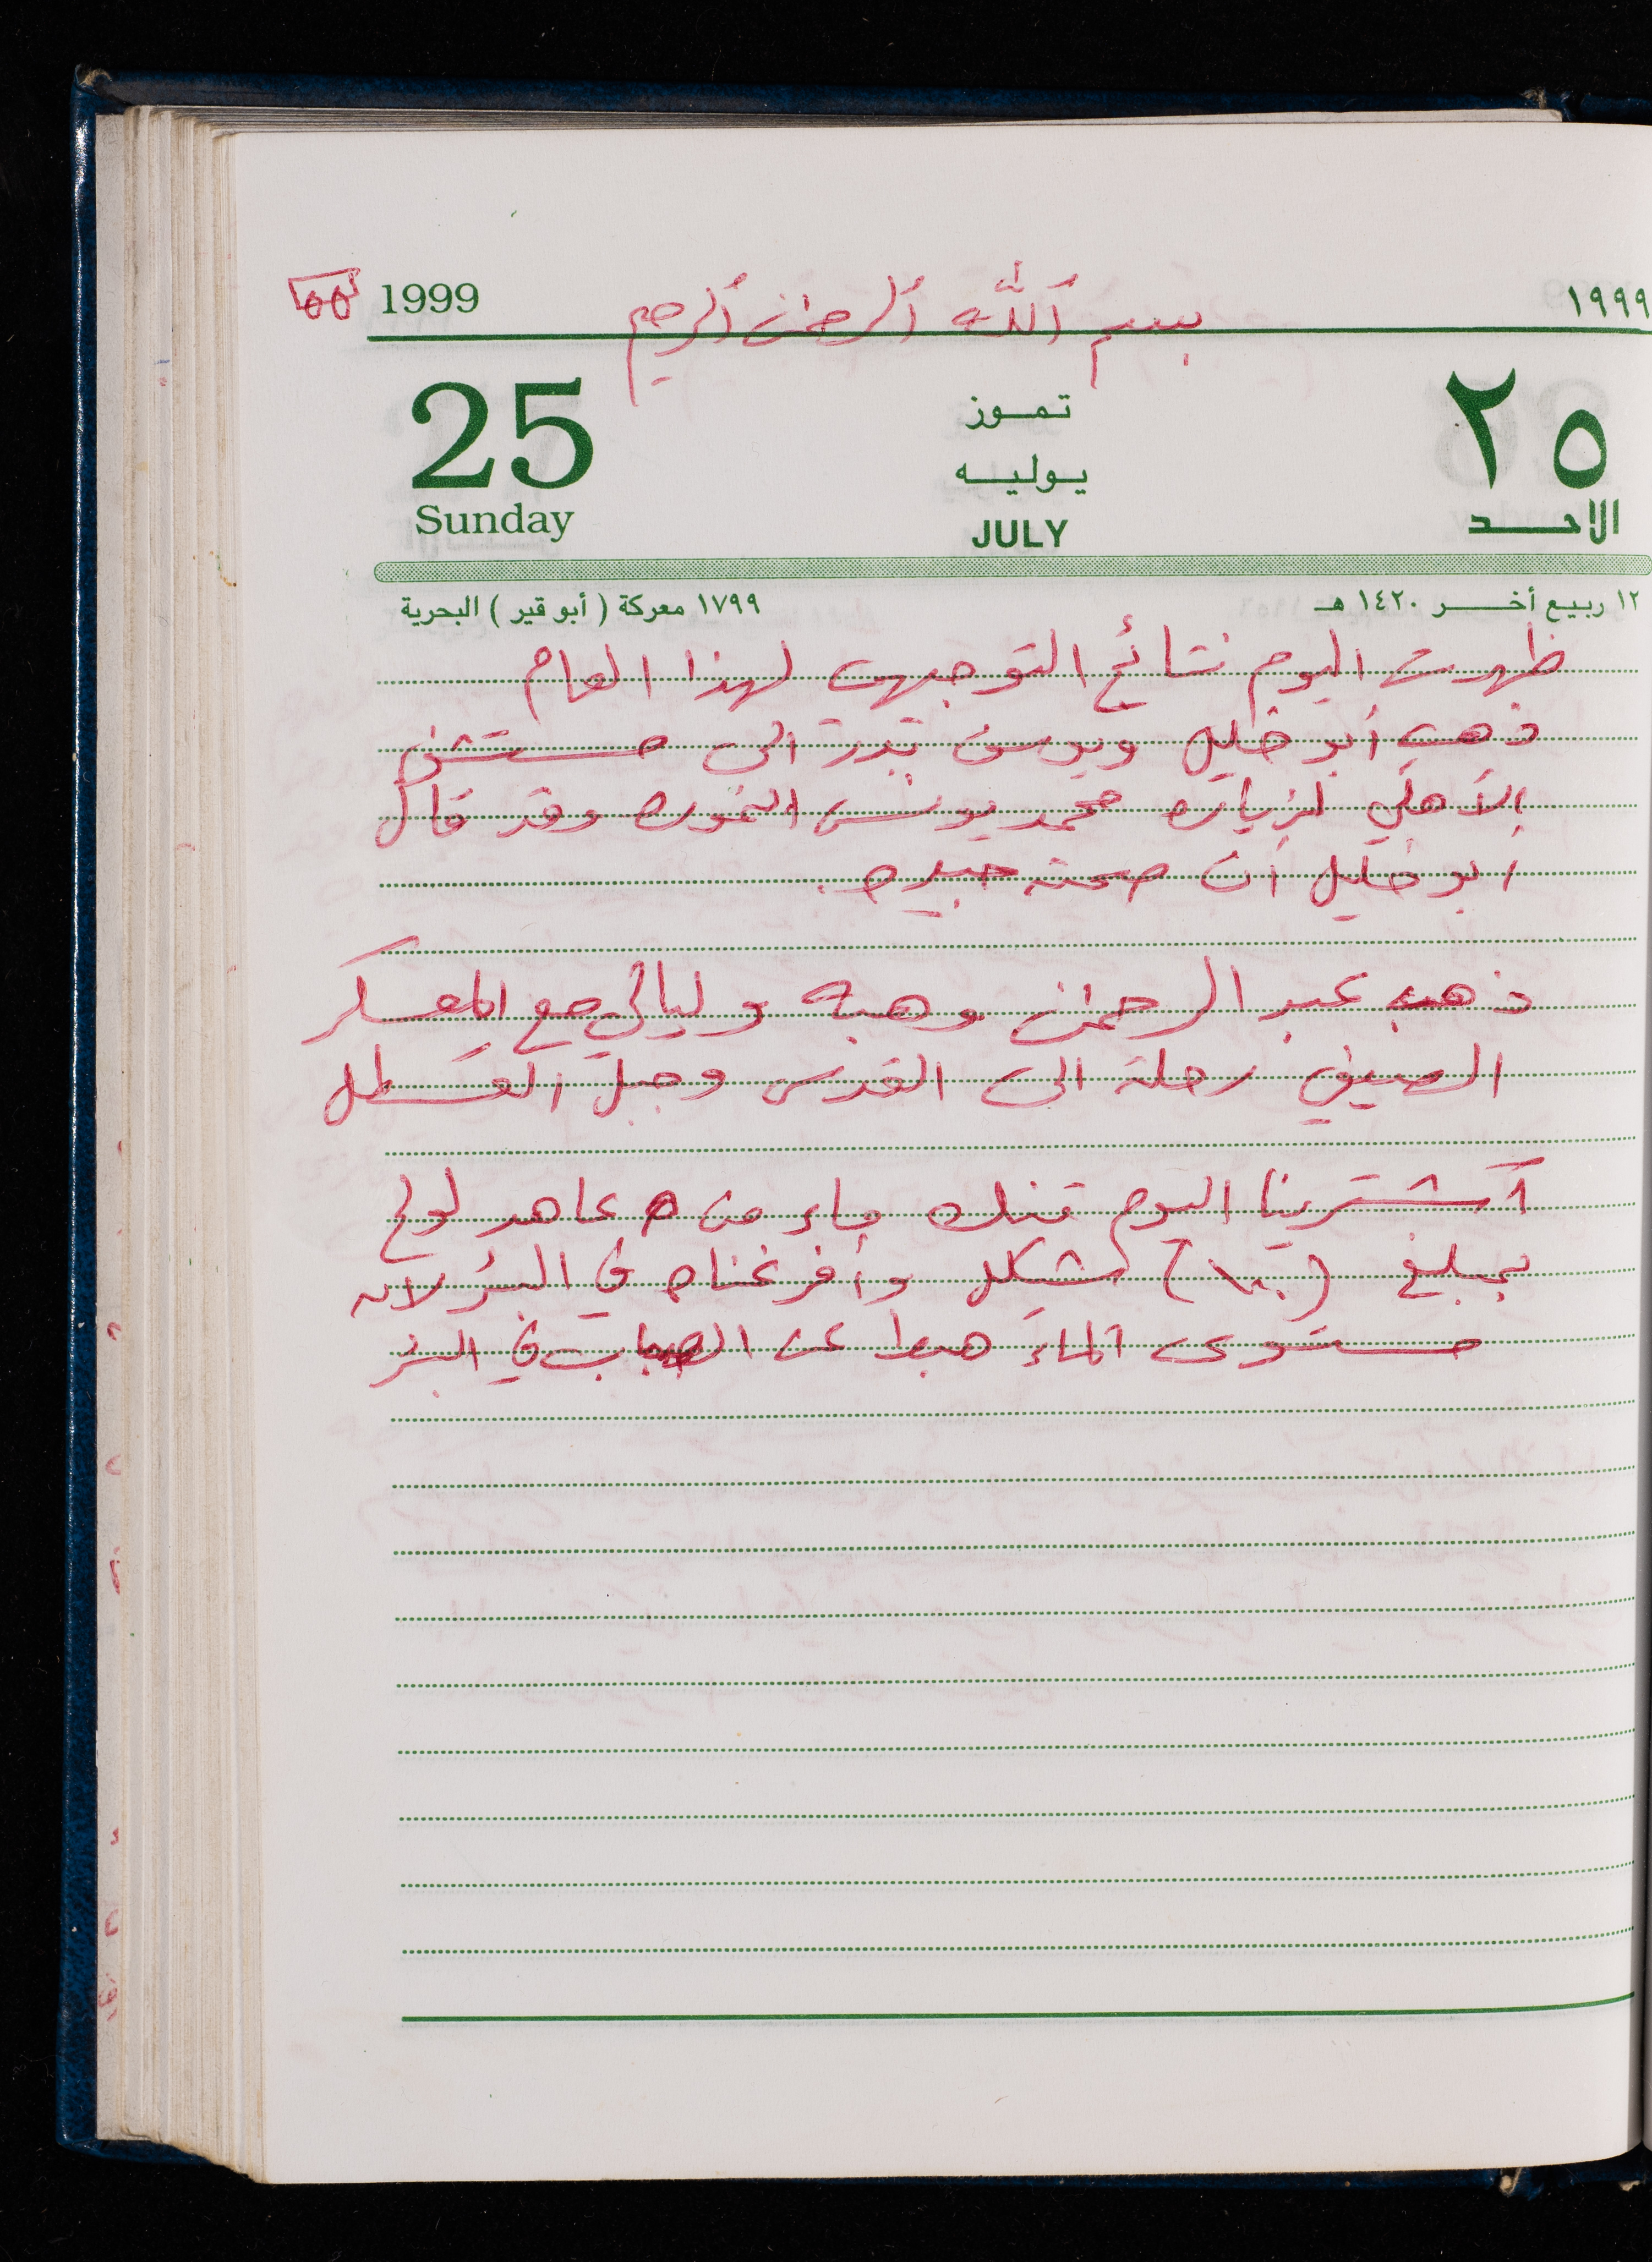 1999 بسم الله الرحمن الرحيم ١٩٩٩
25 تموز ٢٥
يوليه
Sunday JULY الاحد
١٢ ربيع أخر ١٤٢٠ هـ ١٧٩٩ معركة ( أبو قير ) البحرية
ظهرت اليوم نتائج التوجيهي لهذا العام
ذهب أبو خليل ويوسف بدر الى مستشفى
الأهلي لزيارة محمد يونس وقد قال
ابو خليل أن صحته جيده.
ذهب عبد الرحمن وهبه وليالي مع المعسكر
الصيفي رحلة الى القدس وجبل القسطل
اشترينا اليوم تنك ماء من عاهد
بمبلغ شيكل وأفرغناه في البئر لان
مستوى الماء هبط عن في البئر